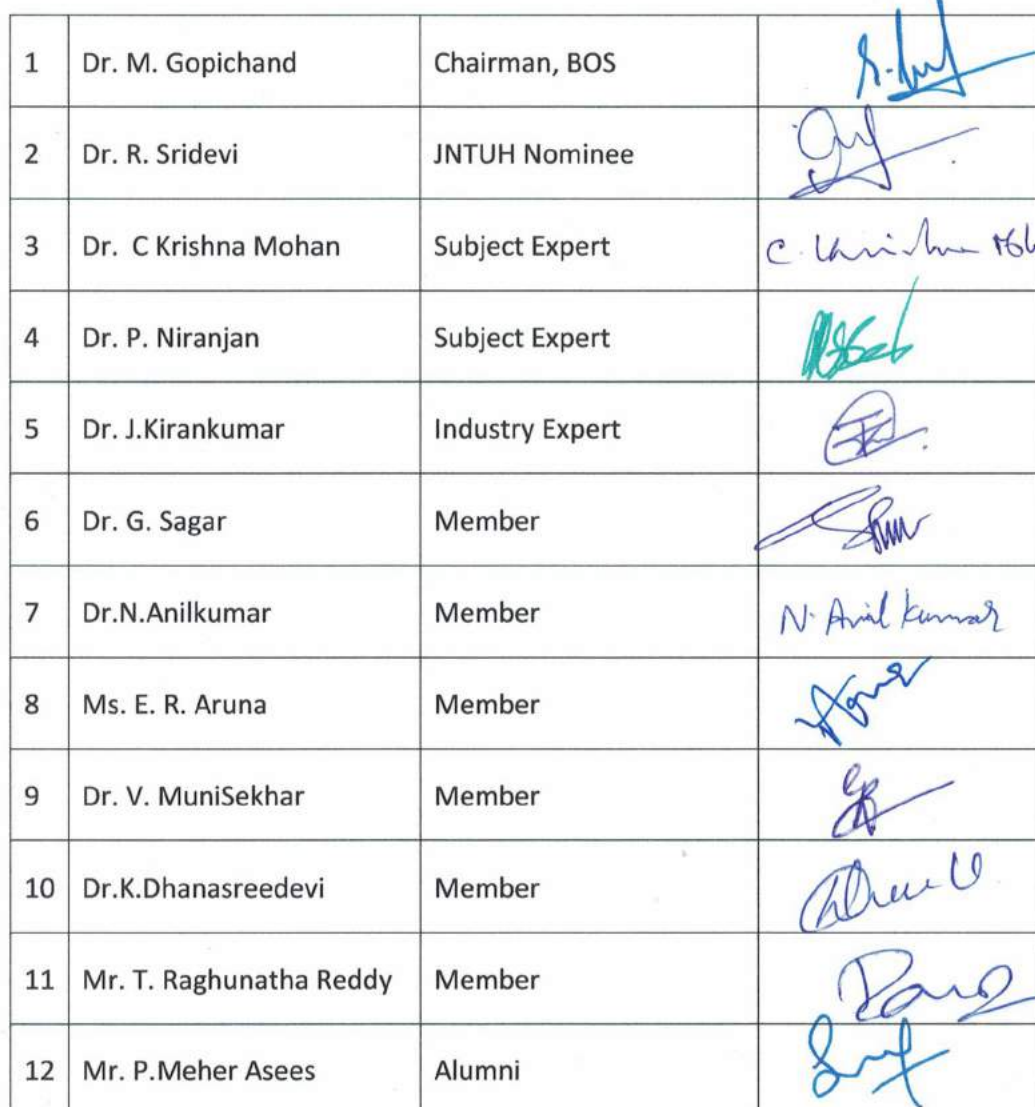 1 Dr. M. Gopichand Chairman, BOS
2 Dr. R. Sridevi JNTUH Nominee
3 Dr. C Krishna Mohan Subject Expert C. Krishna
4 Dr. P. Niranjan Subject Expert
5 Dr. J.Kirankumar Industry Expert
6 Dr. G. Sagar Member
7 Dr.N.Anilkumar Member N. Anil Kumar
8 Ms. E. R. Aruna Member
9 Dr. V. MuniSekhar Member
10 Dr.K.Dhanasreedevi Member
11 Mr. T. Raghunatha Reddy Member
12 Mr. P.Meher Asees Alumni